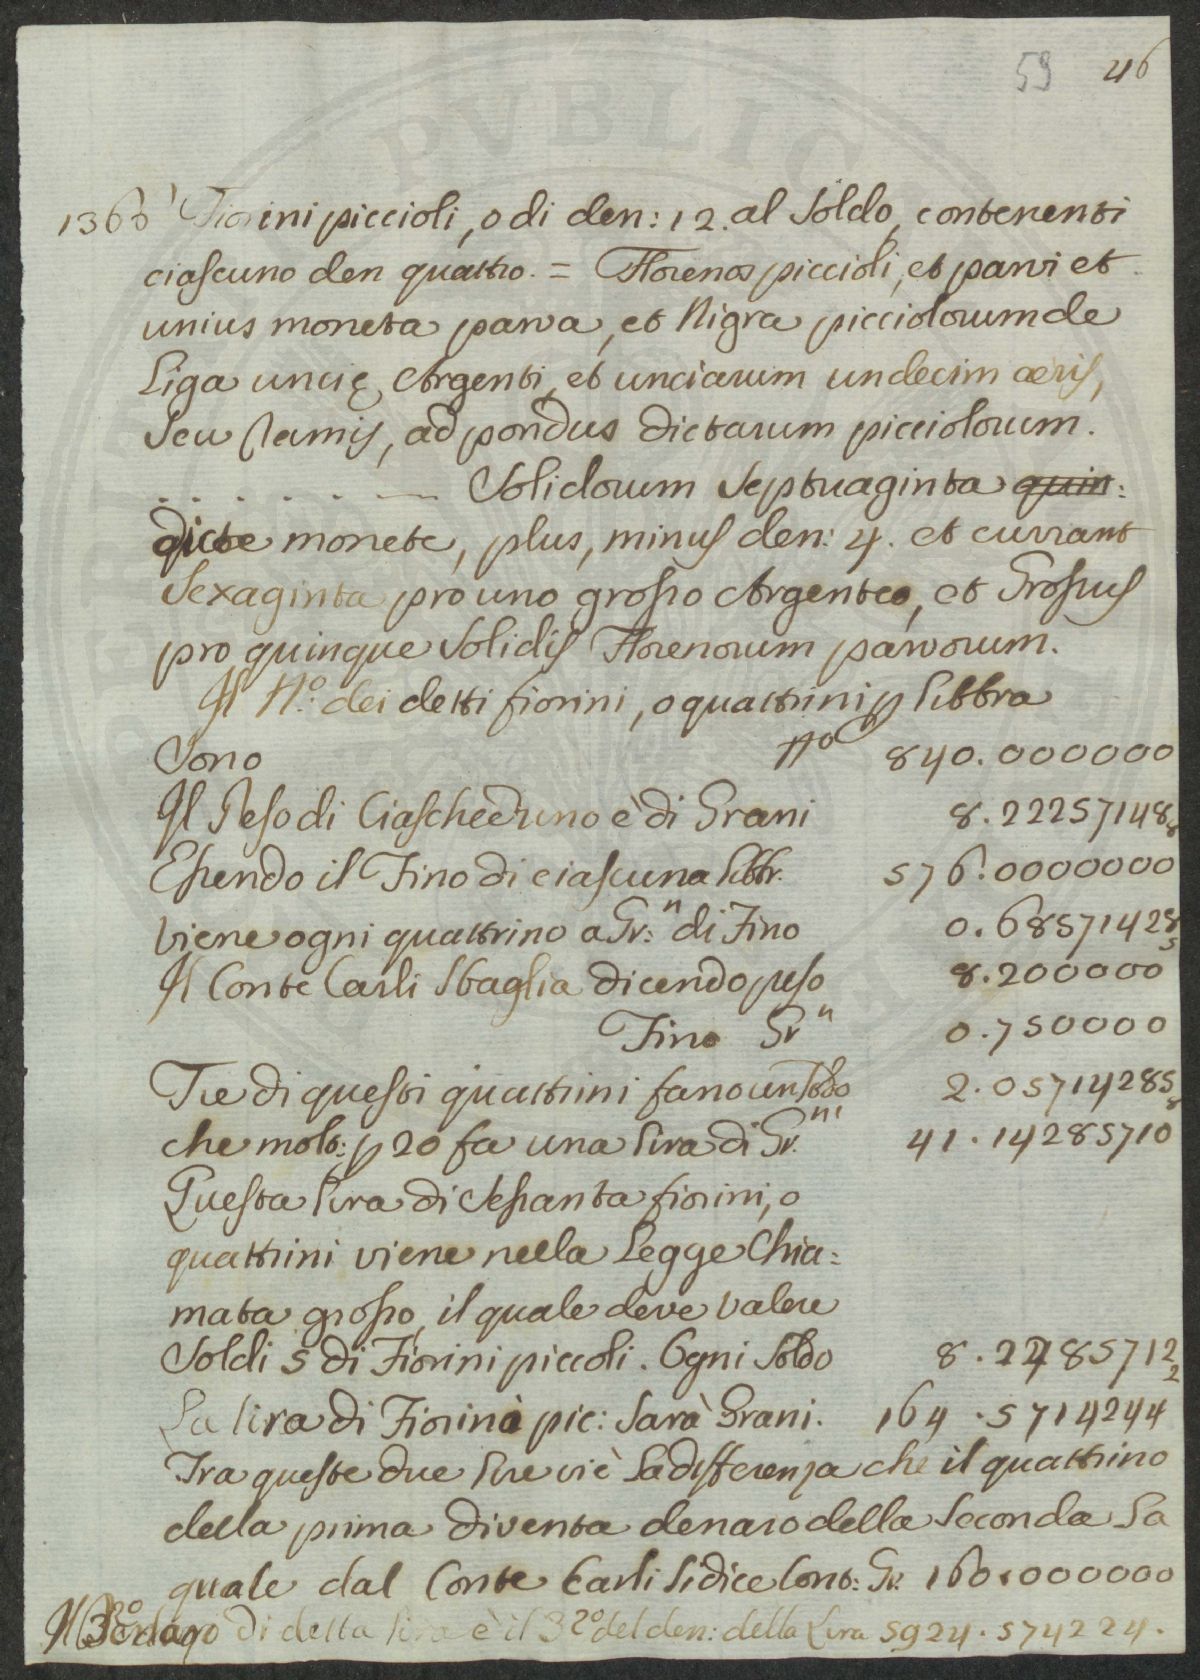 59 46
1366 Fiorini piccioli, o di den: 12. al Soldo, contenenti
ciascuno den quattro. = Florenos piccioli, et parvi et
unius moneta parva, et Nigra picciolorum de
Liga uncię Argenti, et unciarum undecim aeris,
seu Ramis, ad pondus dictarum picciolorum.
. . . . . . — Solidorum Septuaginta quin:
dicte monete, plus, minus den: 4. et currant
Sexaginta pro uno grosso Argenteo, et Grossus
pro quinque Solidis Florenorum parvorum.
Il N.º dei detti fiorini, o quattrini p Libbra
Sono Nº 840.000000
Il Peso di Ciascheduno è di Grani 8.22257148
Essendo il Fino di ciascuna libbr. 576.0000000
viene ogni quattrino a Gr:ⁿ di Fino 0.68571428
Il Conte Carli Sbaglia dicendo peso 8.200000
Fino Grⁿ 0.750000
Tre di questi quattrini fano un Soldo 2.05714285
che molt: p 20 fa una lira di Gr.ⁿⁱ 41.14285710
Questa lira di Sessanta fiorini, o
quattrini viene nella Legge Chia=
mata grosso, il quale deve valere
Soldi 5 di Fiorini piccoli. Ogni Soldo 8.2285712
La lira di Fiorini pic: Sarà Grani. 164.5714244
Tra queste due lire vi è la differenza che il quattrino
della prima diventa denaro della Seconda La
quale dal Conte Carli si dice Cont: Gr. 160.000000
di detta lira è il 32º del den: della Lira 5924.574224.